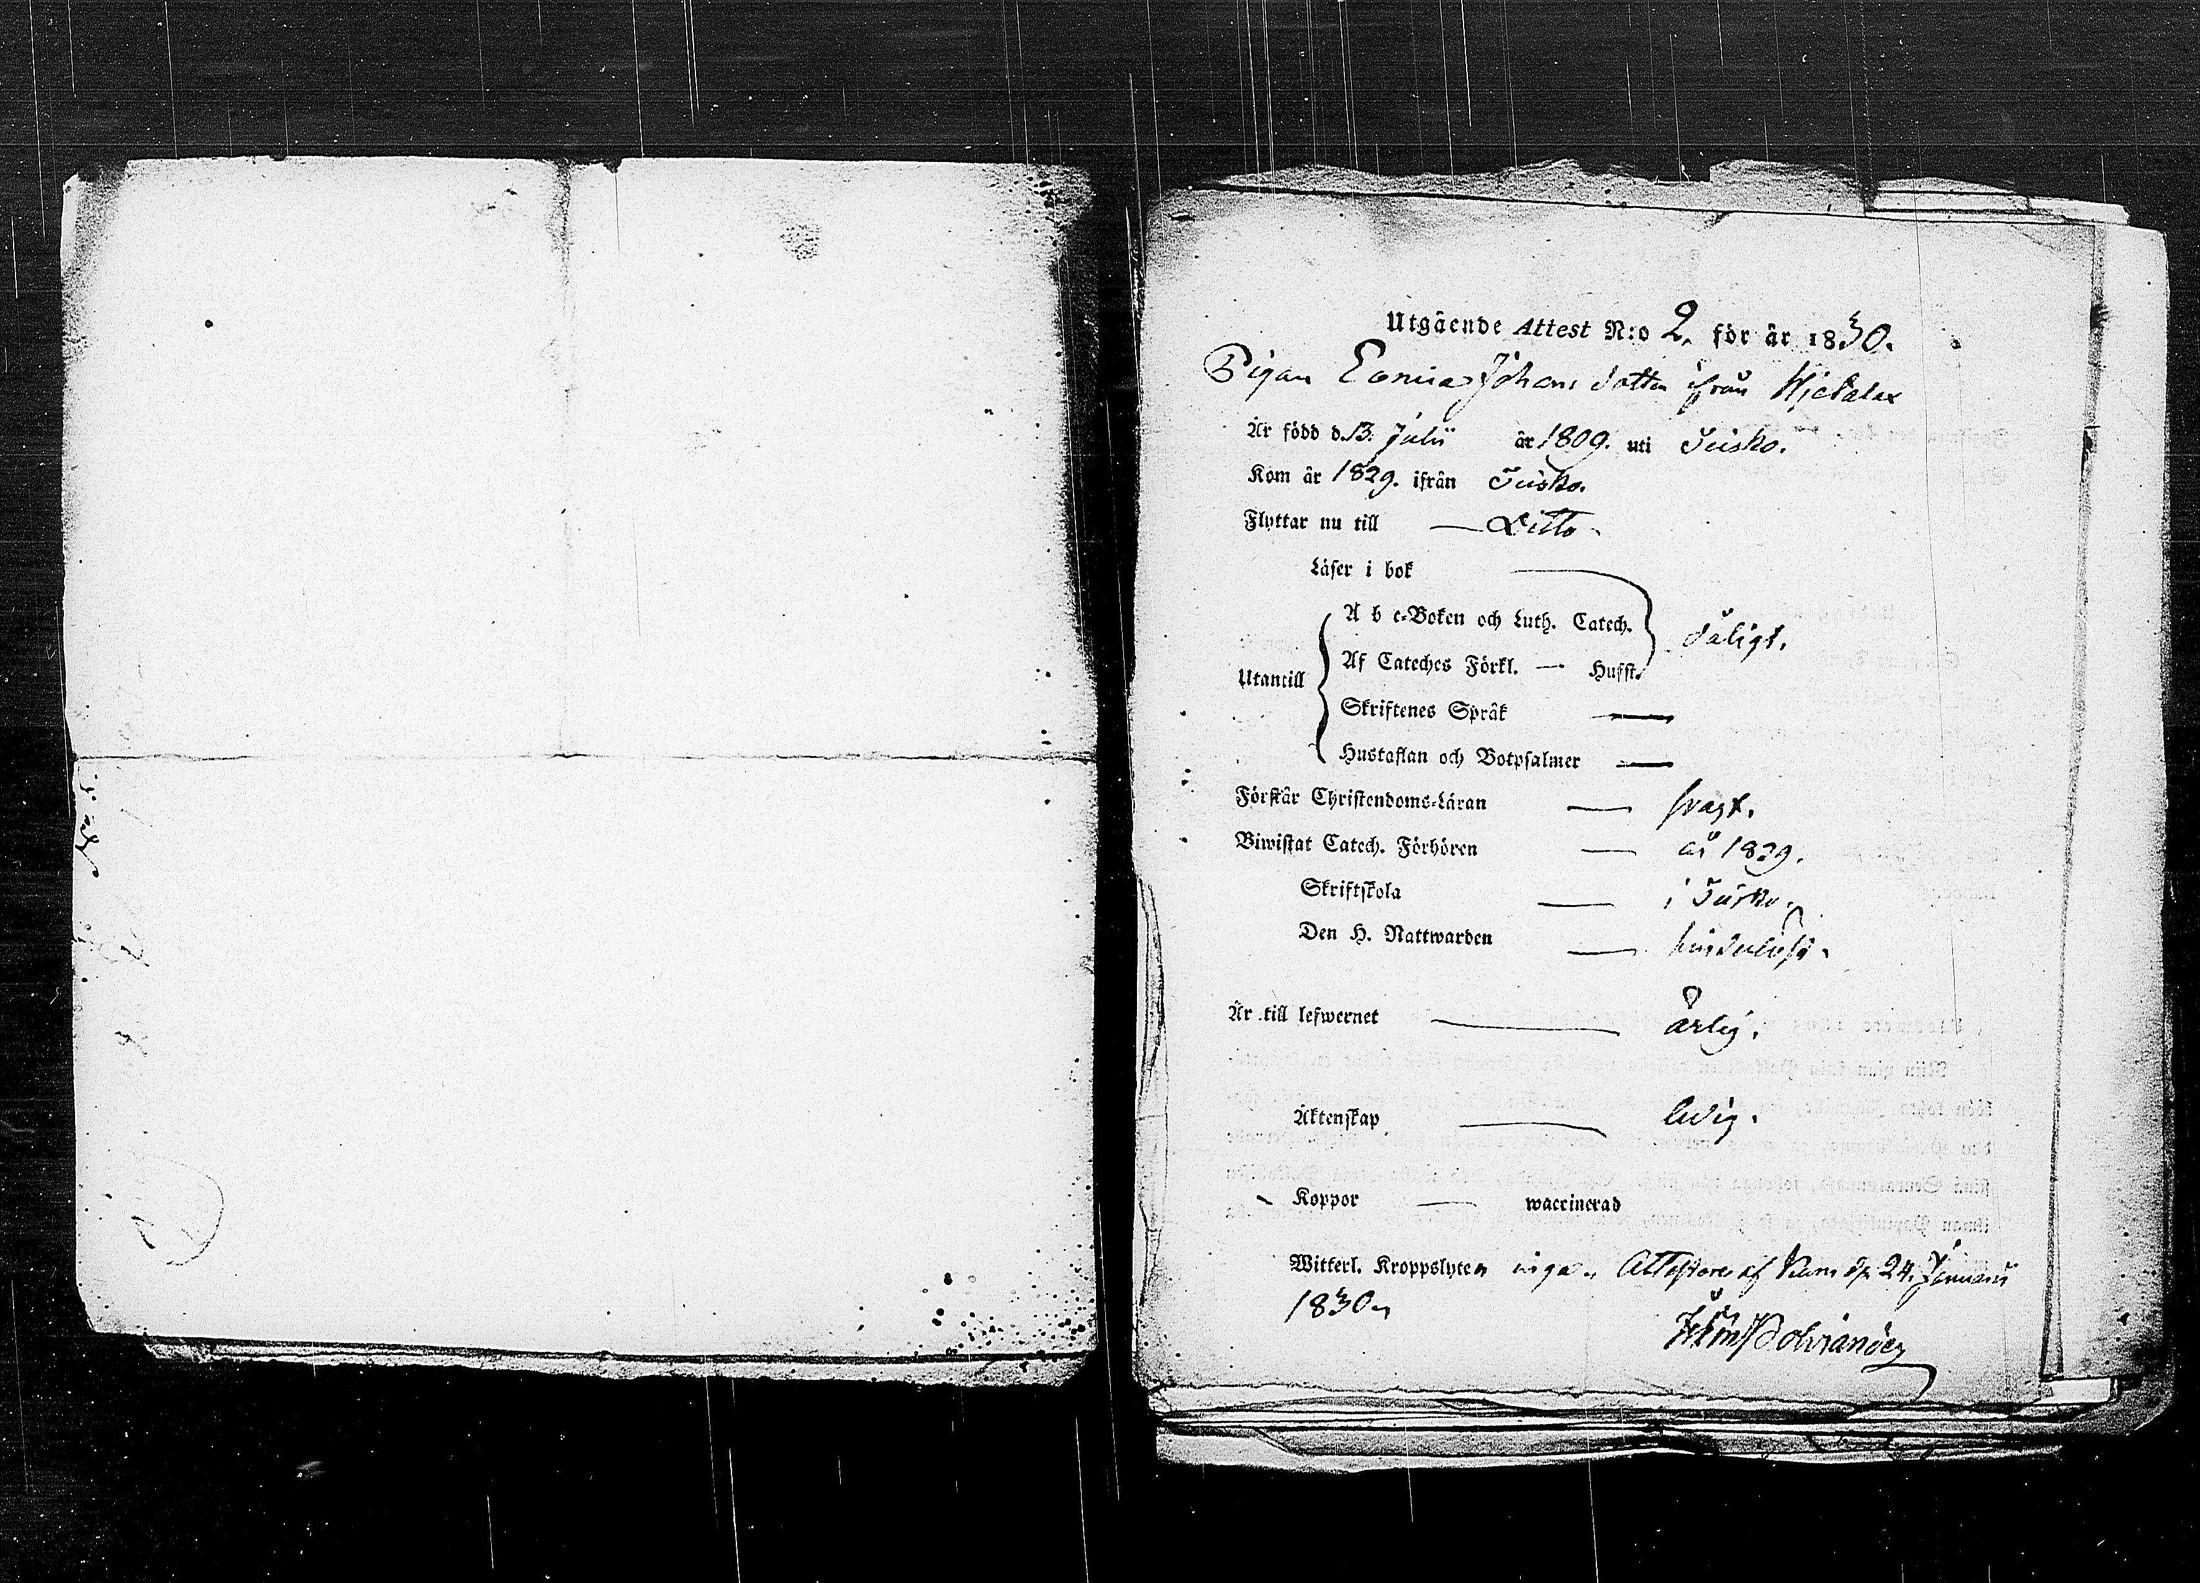 Utgående Attest N:o 2. för år 1830.
Pigan Johans dotter ifrån
Är född d. 13. Julii år 1809. uti Tusko.
Kom år 1829. ifrån Tusko.
Flyttar nu till — Ditto.
Läser i bok —
A b c-Boken och Luth. Catech.
dåligt.
Af Cateches Förkl. — Husst.
Utantill
Skriftenes Språk —
Hustaflan och Botpsalmer —
Förstår Christendoms-Läran — svagt.
Biwistat Catech. Förhören — år 1829.
Skriftskola — i Tusko.
Den H. Nattwarden —
Är till lefwernet — ärlig.
Äktenskap — ledig.
Koppor — waccinerad
Witterl. Kroppslyten inga. Attesterar af den 24. Januarii
1830.